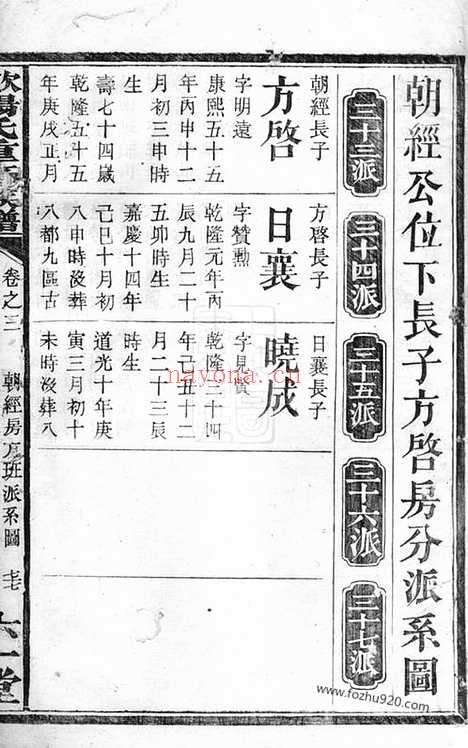 朝經公位下長子方啓房分派系圖
三十三派
三十四派
三十五派
三十六派
三十七派
朝經長子
方啓
字明遠
康熙五十五
年丙申十二
月初三申時
生
壽七十四歲
乾隆五十五
年庚戌正月
方啓長子
日襄
字贊勲
乾隆元年丙
辰九月二十
五卯時生
嘉慶十四年
己巳十月初
八申時沒葬
八都九區古
日襄長子
曉成
乾隆三十四
年己丑十二
月二十三辰
時生
道光十年庚
寅三月初十
未時沒葬八
氏重修族譜
卷之三
朝經房
班派系圖
六一堂
nayona.cn
www.fozhu920.com